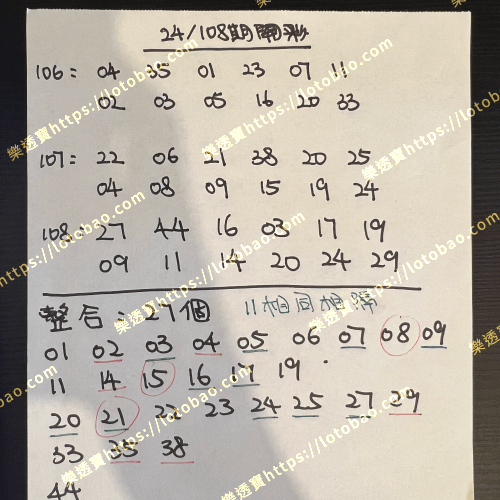 24/108期開彩
106: 04 35 01 23 07 11
02 03 05 16 20 33
107: 22 06 21 38 20 25
04 08 09 15 19 24
108: 27 44 16 03 17 19
09 11 14 20 24 29
整合: 27個 11相同相隔
01 02 03 04 05 06 07 08 09
11 14 15 16 17 19
20 21 22 23 24 25 27 29
33 35 38
44
樂透寶https://lotobao.com/